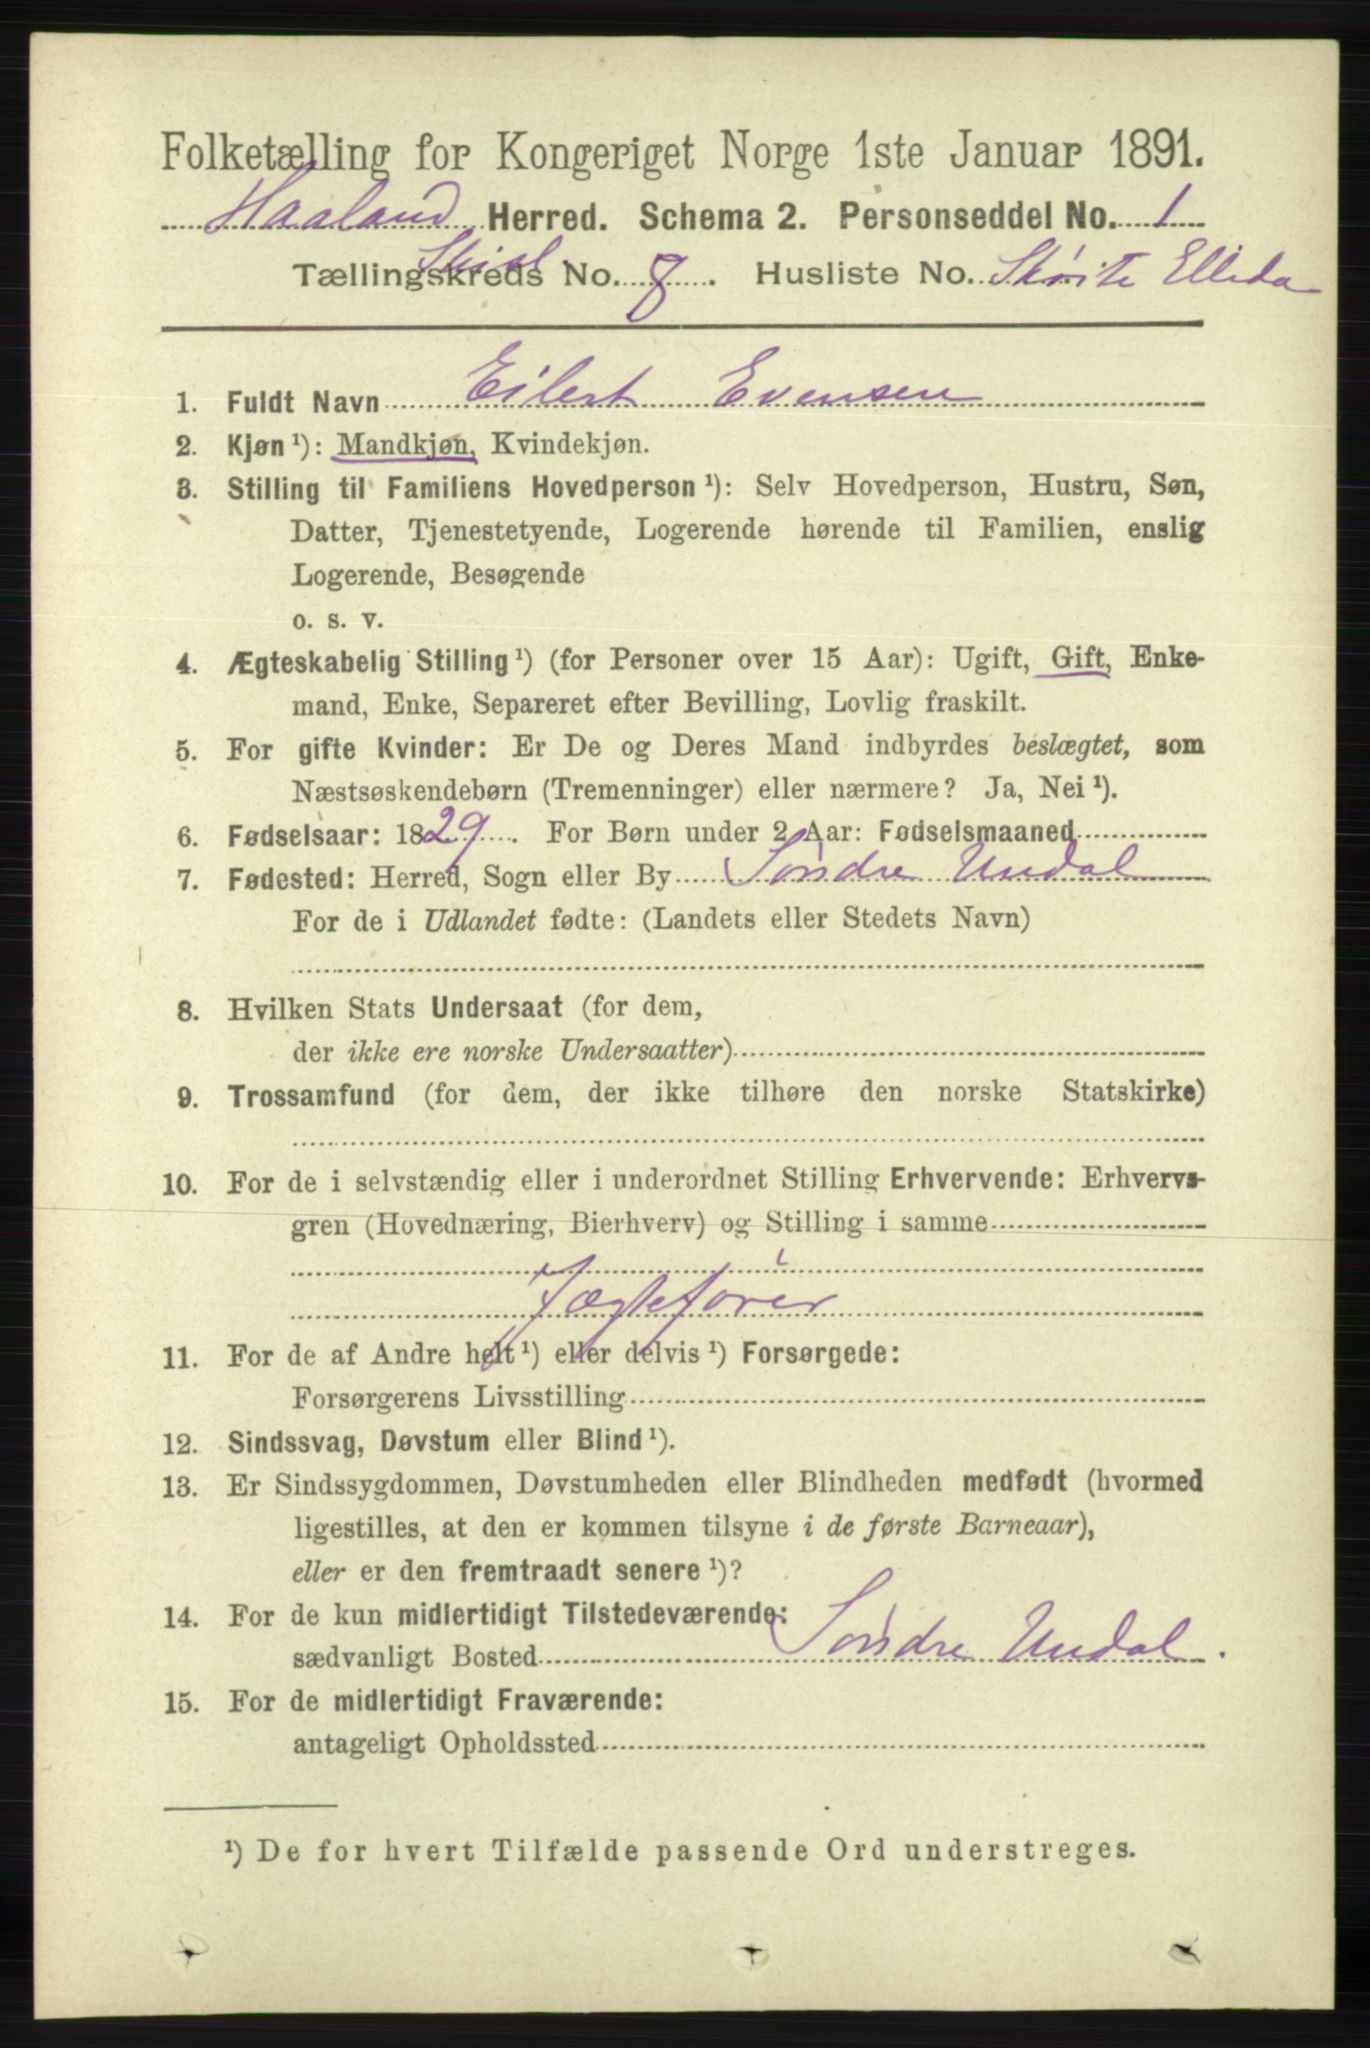 Folketælling for Kongeriget Norge 1ste Januar 1891.
Haaland Herred. Schema 2. Personseddel No. 1
Tællingskreds No. 8. Husliste No. Elleda
1. Fuldt Navn Eilert Evensen
2. Kjøn ¹): Mandkjøn, Kvindekjøn.
3. Stilling til Familiens Hovedperson ¹): Selv Hovedperson, Hustru, Søn,
Datter, Tjenestetyende, Logerende hørende til Familien, enslig
Logerende, Besøgende
o. s. v.
4. Ægteskabelig Stilling ¹) (for Personer over 15 Aar): Ugift, Gift, Enke-
mand, Enke, Separeret efter Bevilling, Lovlig fraskilt.
5. For gifte Kvinder: Er De og Deres Mand indbyrdes beslægtet, som
Næstsøskendebørn (Tremenninger) eller nærmere? Ja, Nei ¹).
6. Fødselsaar: 1829. For Børn under 2 Aar: Fødselsmaaned
7. Fødested: Herred, Sogn eller By Søndre Undal
For de i Udlandet fødte: (Landets eller Stedets Navn)
8. Hvilken Stats Undersaat (for dem,
der ikke ere norske Undersaatter)
9. Trossamfund (for dem, der ikke tilhøre den norske Statskirke)
10. For de i selvstændig eller i underordnet Stilling Erhvervende: Erhvervs-
gren (Hovednæring, Bierhverv) og Stilling i samme
Jægtefører
11. For de af Andre helt ¹) eller delvis ¹) Forsørgede:
Forsørgerens Livsstilling
12. Sindssvag, Døvstum eller Blind ¹).
13. Er Sindssygdommen, Døvstumheden eller Blindheden medfødt (hvormed
ligestilles, at den er kommen tilsyne i de første Barneaar),
eller er den fremtraadt senere ¹)?
14. For de kun midlertidigt Tilstedeværende:
sædvanligt Bosted Søndre Undal.
15. For de midlertidigt Fraværende:
antageligt Opholdssted
¹) De for hvert Tilfælde passende Ord understreges.